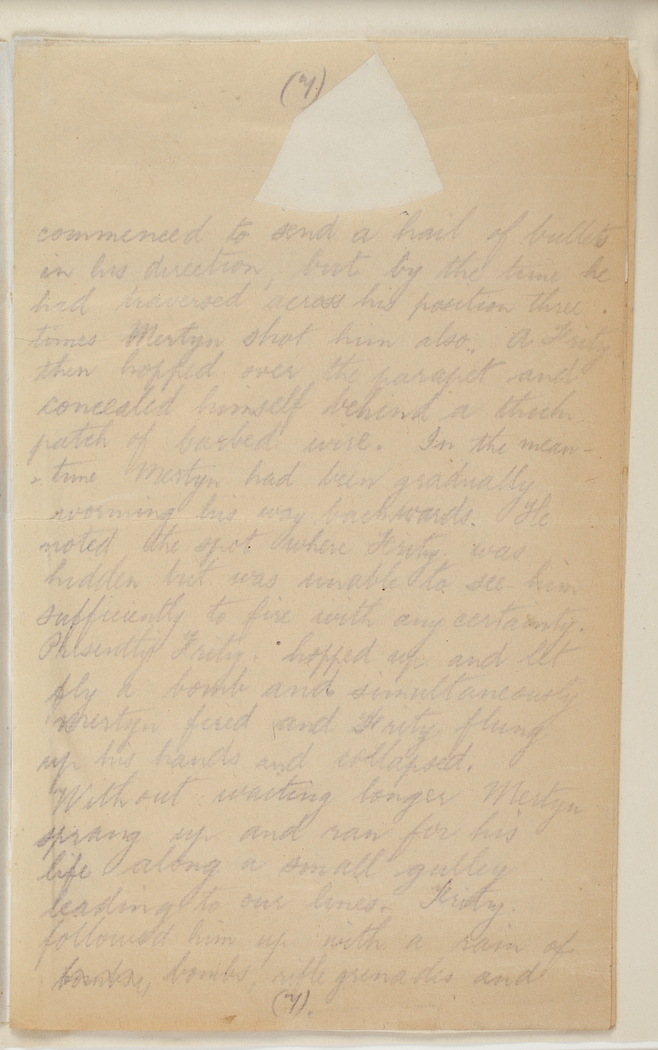 (7)
commenced to send a hail of bullets
in his direction, but by the time he
had traversed across his position three
times Mertyn shot him also. A Fritz
then hopped over the parapet and
concealed himself behind a thick
patch of barbed wire. In the mean-
-time Mertyn had been gradually
worming his way backwards. He
noted the spot where Fritz was
hidden but was unable to see him
sufficiently to fire with any certainty.
Presently Fritz. hopped up and let
fly a bomb and simultaneously
Mertyn fired and Fritz flung
up his hands and collapsed.
Without waiting longer Mertyn
sprang up and ran for his
life along a small gulley
leading to our lines. Fritz
followed him up with a rain of
bombs, rifle grenades and
(7).